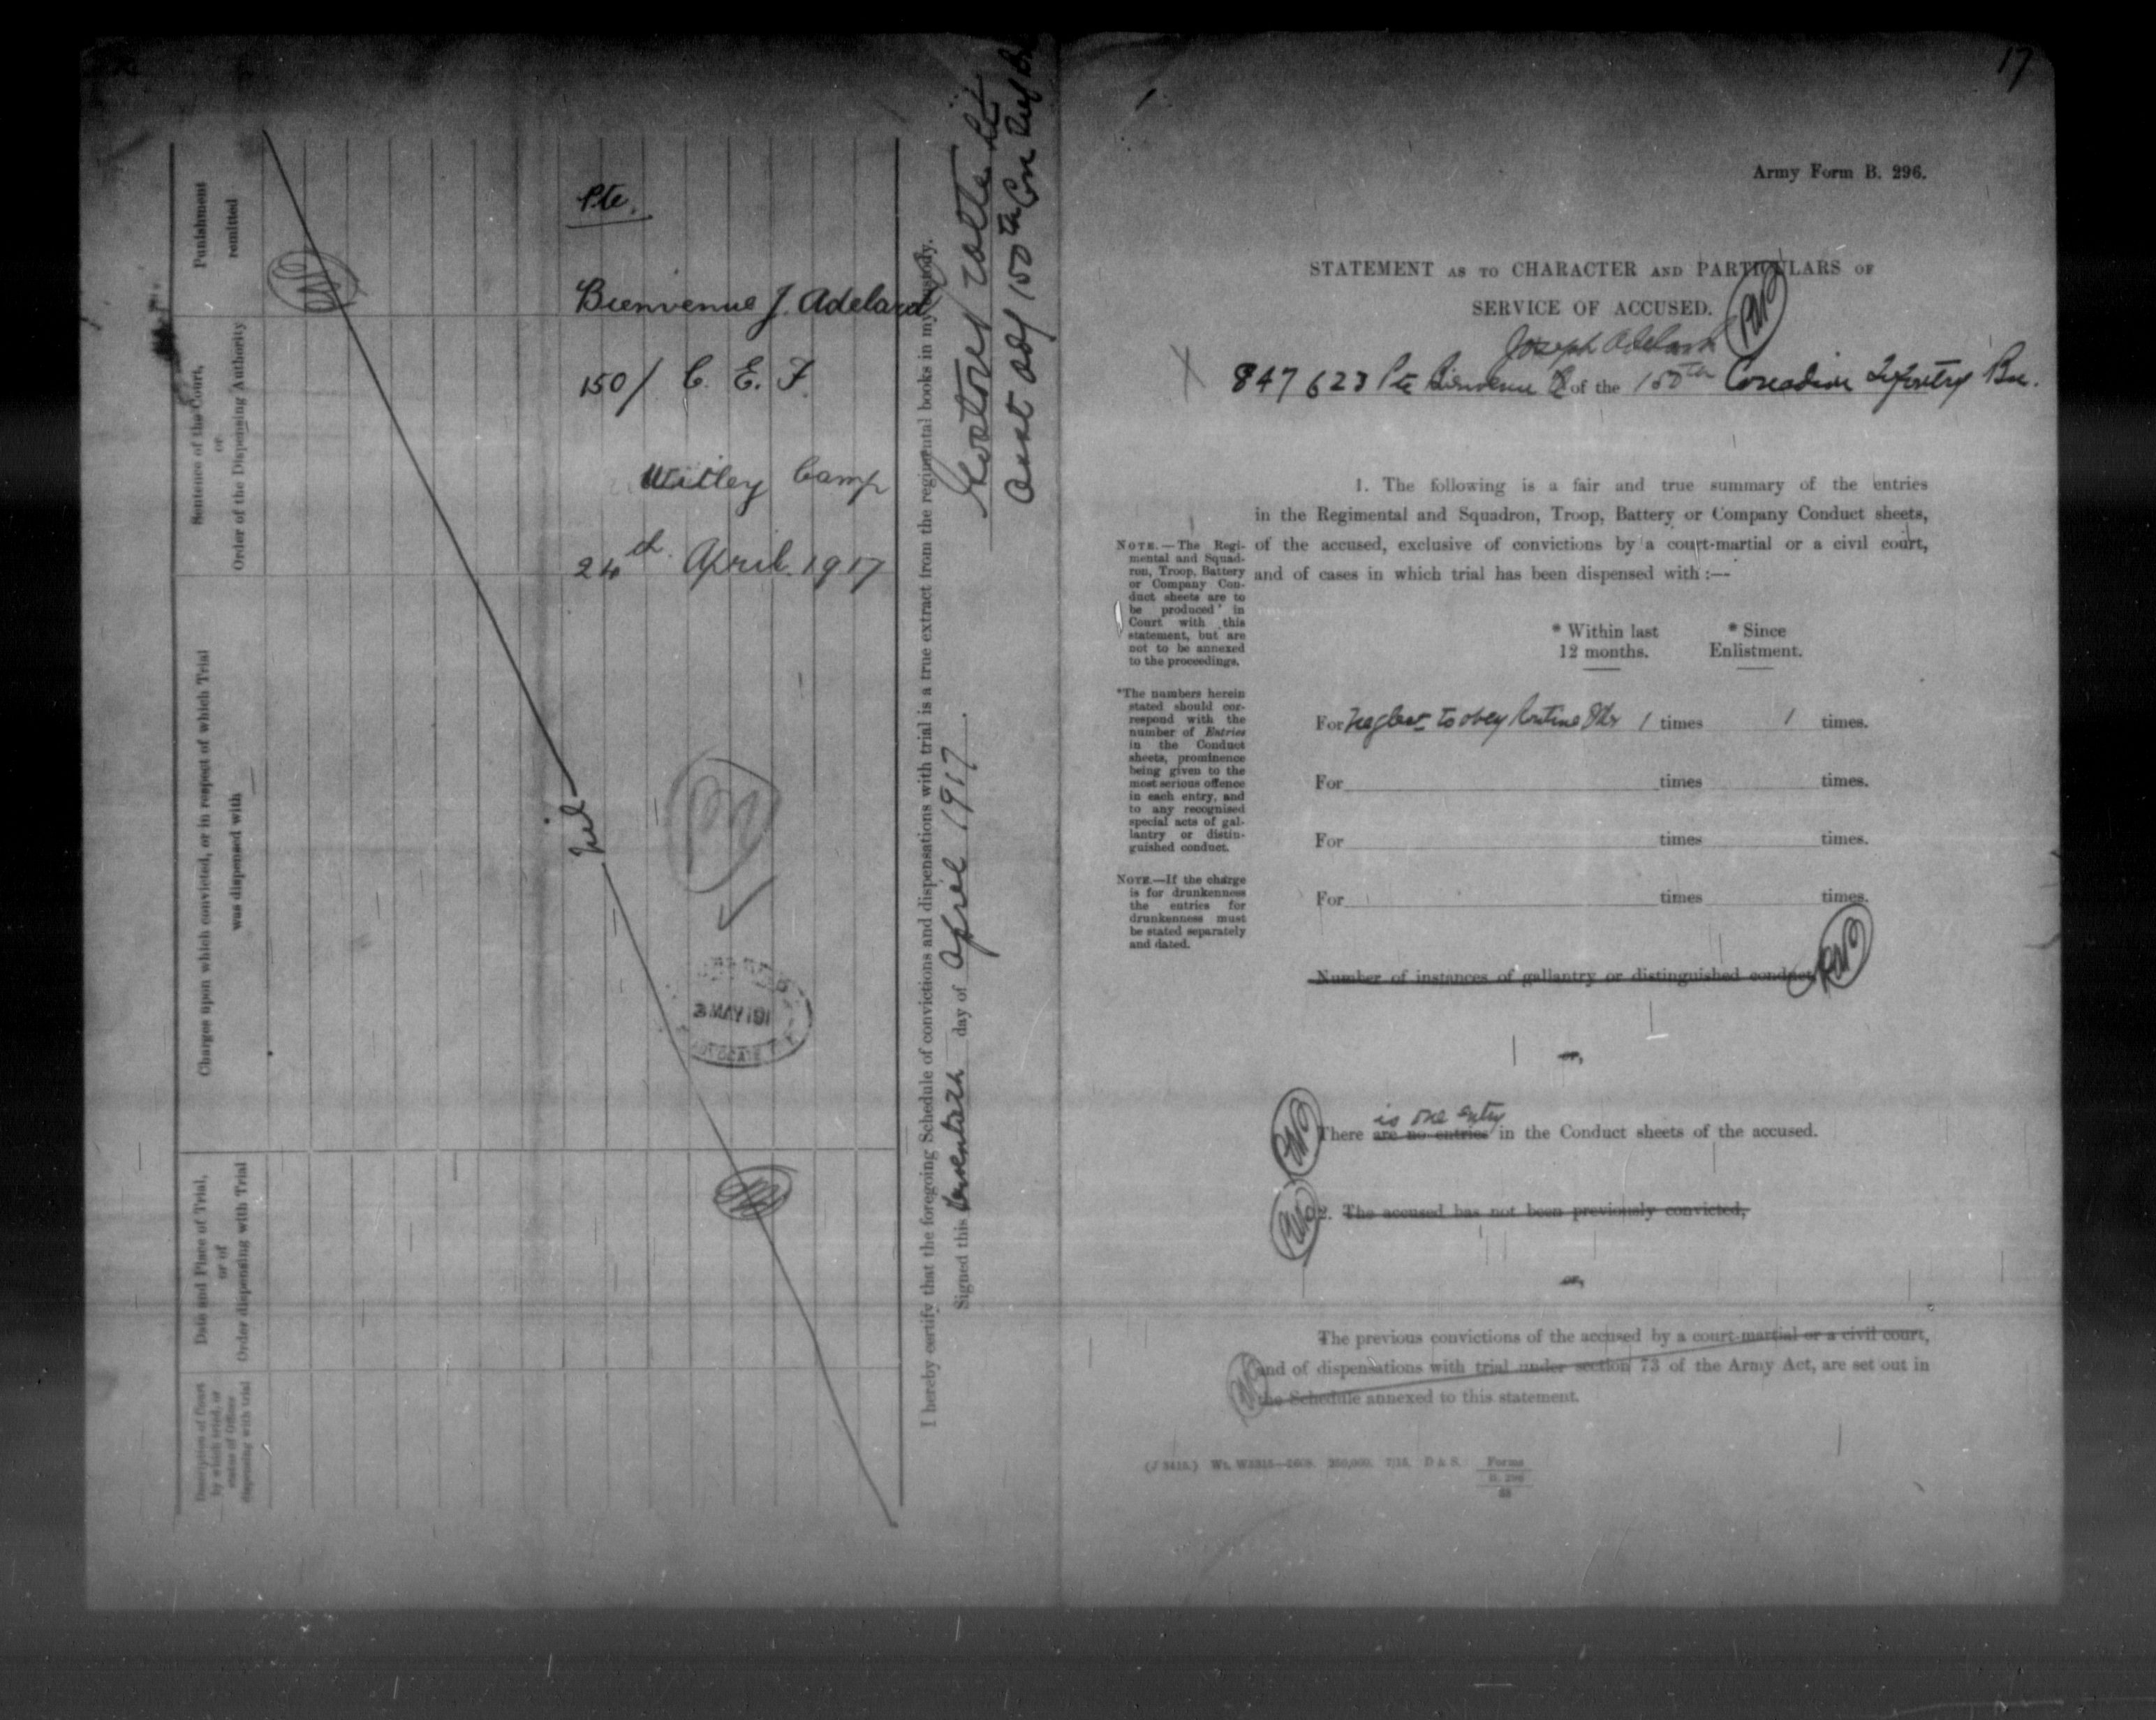 Punishment
remitted
Sentence of the Court,
or
Order of the Dispensing Authority
Charges upon which convicted, or in respect of which Trial
was dispensed with
Date and Place of Trial,
or of
Order dispensing with Trial
Description of Court
by which tried, or
status of Officer
dispensing with trial
Pte.
Bienvenue J. Adelard
150/ C. E. F.
Witley Camp
24th. April. 1917
Nil
MAY 191
ADVOCATE
I hereby certify that the foregoing Schedule of convictions and dispensations with trial is a true extract from the regimental books in my custody.
Signed this day of April 1917.
Lt
Asst Adj 150th Can
17
Army Form B. 296.
STATEMENT AS TO CHARACTER AND PARTICULARS OF
SERVICE OF ACCUSED.
Joseph Adelard
847623 Pte Bienvenu of the 150th Canadian Infantry Bn.
1. The following is a fair and true summary of the entries
in the Regimental and Squadron, Troop, Battery or Company Conduct sheets,
of the accused, exclusive of convictions by a court-martial or a civil court,
and of cases in which trial has been dispensed with :—
NOTE.—The Regi-
mental and Squad-
ron, Troop, Battery
or Company Con-
duct sheets are to
be produced in
Court with this
statement, but are
not to be annexed
to the proceedings.
*The numbers herein
stated should cor-
respond with the
number of Entries
in the Conduct
sheets, prominence
being given to the
most serious offence
in each entry, and
to any recognised
special acts of gal-
lantry or distin-
guished conduct.
NOTE.—If the charge
is for drunkenness
the entries for
drunkenness must
be stated separately
and dated.
* Within last
12 months.
* Since
Enlistment.
For Neglect to obey Routine 1 times 1 times.
For times times.
For times times.
For times times.
Number of instances of gallantry or distinguished conduct
or,
is one entry
There are no entries in the Conduct sheets of the accused.
2. The accused has not been previously convicted,
or,
The previous convictions of the accused by a court-martial or a civil court,
and of dispensations with trial under section 73 of the Army Act, are set out in
the Schedule annexed to this statement.
Forms
B. 296